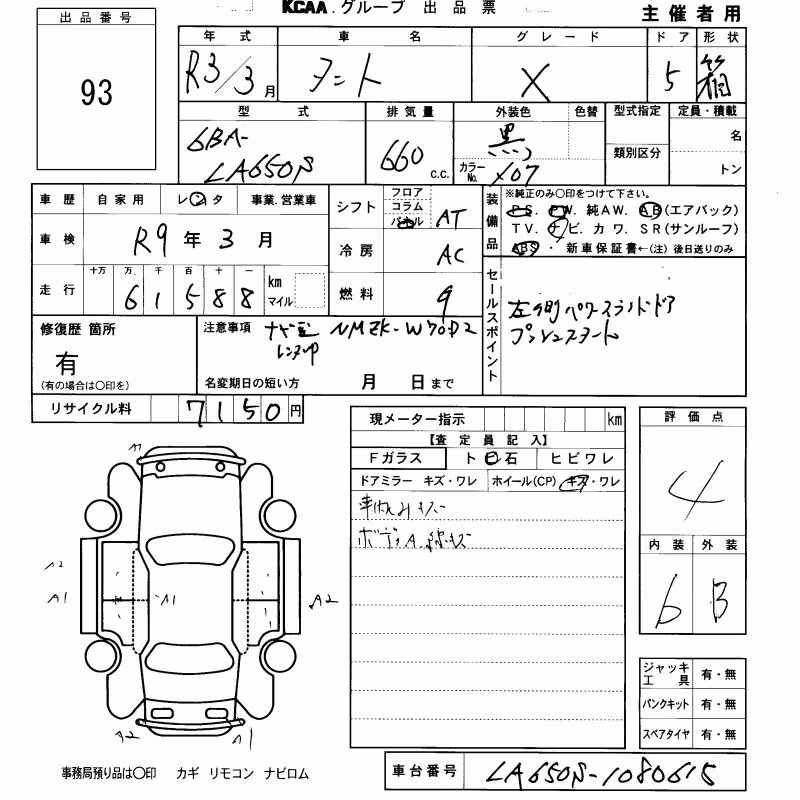 KCAA.グループ 出品票
主催者用
出品番号
93
年式 車名 グレード ドア 形状
R3/3月 タント X 5 箱
型式 排気量 外装色 色替 型式指定 定員・積載
6BA-
LA650S 660 c.c. 黒 カラーNo. X07 類別区分 名
トン
車歴 自家用 レンタ 事業.営業車
車検 R9年3月
走行 十万 万 千 百 十 一
6 1 5 8 8 km マイル
シフト フロア コラム パネル AT
冷房 AC
燃料 g
装備品 ※純正のみ〇印をつけて下さい。
PS. PW. 純AW. AB(エアバック)
TV. ナビ. カワ. SR(サンルーフ)
ABS ・ 新車保証書←(注) 後日送りのみ
セールスポイント
左側パワースライドドア
プッシュスタート
修復歴 箇所
有
(有の場合は〇印を)
注意事項 ナビ NMZK-W70D2
名変期日の短い方 月 日まで
リサイクル料 7150円
現メーター指示 km
【査定員記入】
Fガラス ト 石 ヒビワレ
ドアミラー キズ・ワレ ホイール(CP) キズ・ワレ
ボディA 線キズ
評価点
4
内装 外装
6 B
ジャッキ工具 有・無
パンクキット 有・無
スペアタイヤ 有・無
A2
A1 A1 A2
A2 A1
事務局預り品は〇印 カギ リモコン ナビロム
車台番号 LA650S-1080615